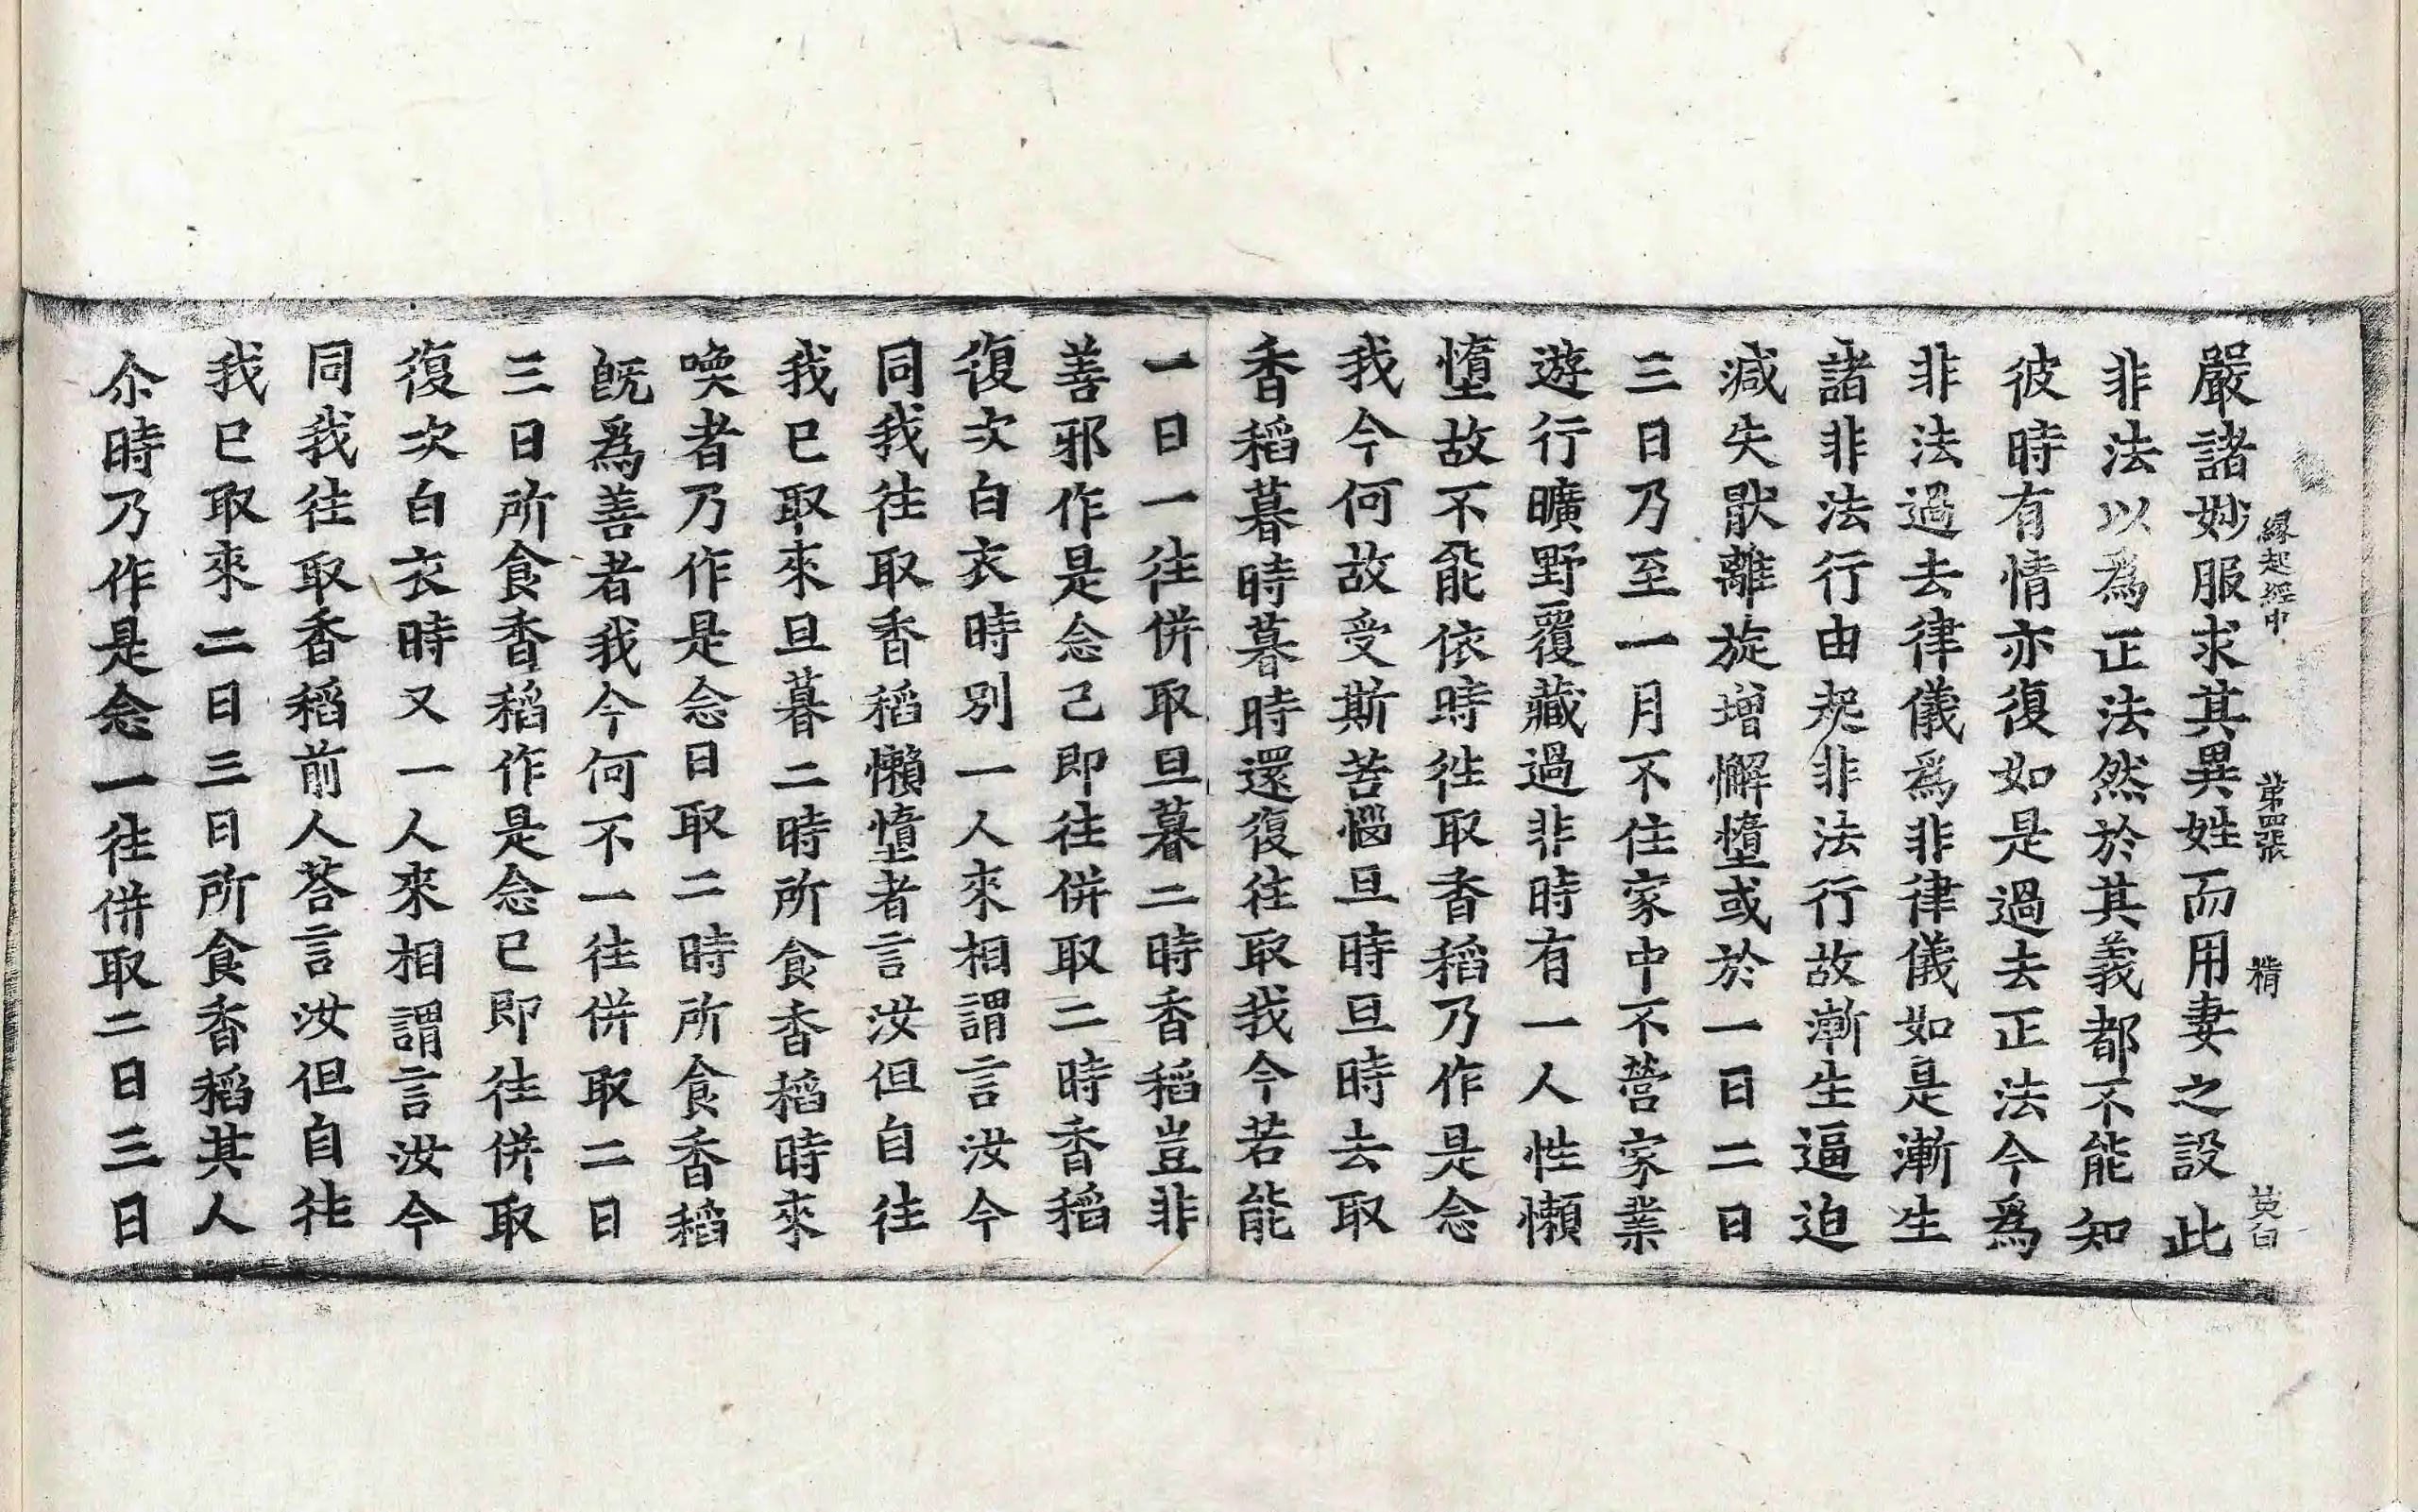 緣起經中 第四張 精 英白
嚴諸妙服求其異姓而用妻之設此
非法以為正法然於其義都不能知
彼時有情亦復如是過去正法今爲
非法過去律儀爲非律儀如是漸生
諸非法行由起非法行故漸生逼迫
減失猒離旋增懈墮或於一日二日
三日乃至一月不住家中不營家業
遊行曠野覆藏過非時有一人性懶
墮故不能依時往取香稻乃作是念
我今何故受斯苦惱旦時旦時去取
香稻暮時暮時還復往取我今若能
一日一往併取旦暮二時香稻豈非
善邪作是念已即往併取二時香稻
復次白衣時別一人來相謂言汝今
同我往取香稻懶墮者言汝但自往
我已取來旦暮二時所食香稻時來
喚者乃作是念日取二時所食香稻
旣爲善者我今何不一往併取二日
三日所食香稻作是念已即往併取
復次白衣時又一人來相謂言汝今
同我往取香稻前人荅言汝但自往
我已取來二日三日所食香稻其人
尒時乃作是念一往併取二日三日